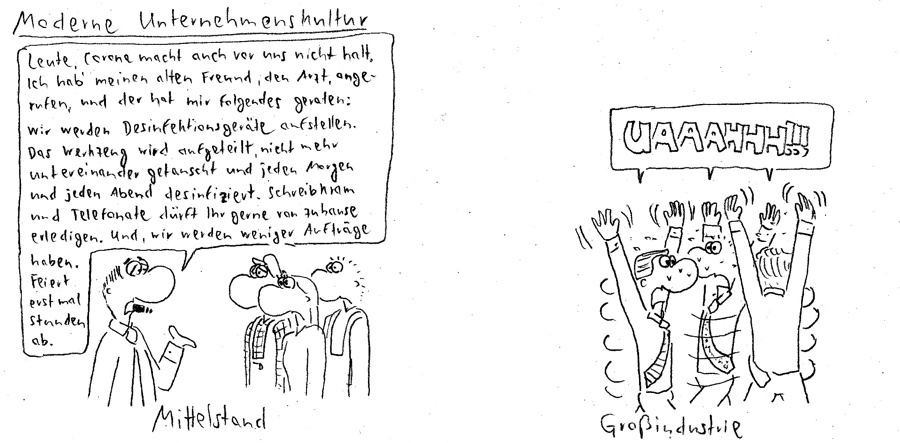 Moderne Unternehmenskultur
Leute, Corona macht auch vor uns nicht halt,
Ich hab' meinen alten Freund, den Arzt, ange-
rufen, und der hat mir folgendes geraten:
wir werden Desinfektionsgeräte aufstellen.
Das Werkzeug wird aufgeteilt, nicht mehr
untereinander getauscht und jeden Morgen
und jeden Abend desinfiziert. Schreibkram
und Telefonate dürft Ihr gerne von zuhause
erledigen. Und, wir werden weniger Aufträge
haben.
Feiert
erstmal
Stunden
ab.
Mittelstand
UAAAHHH!!!
Großindustrie